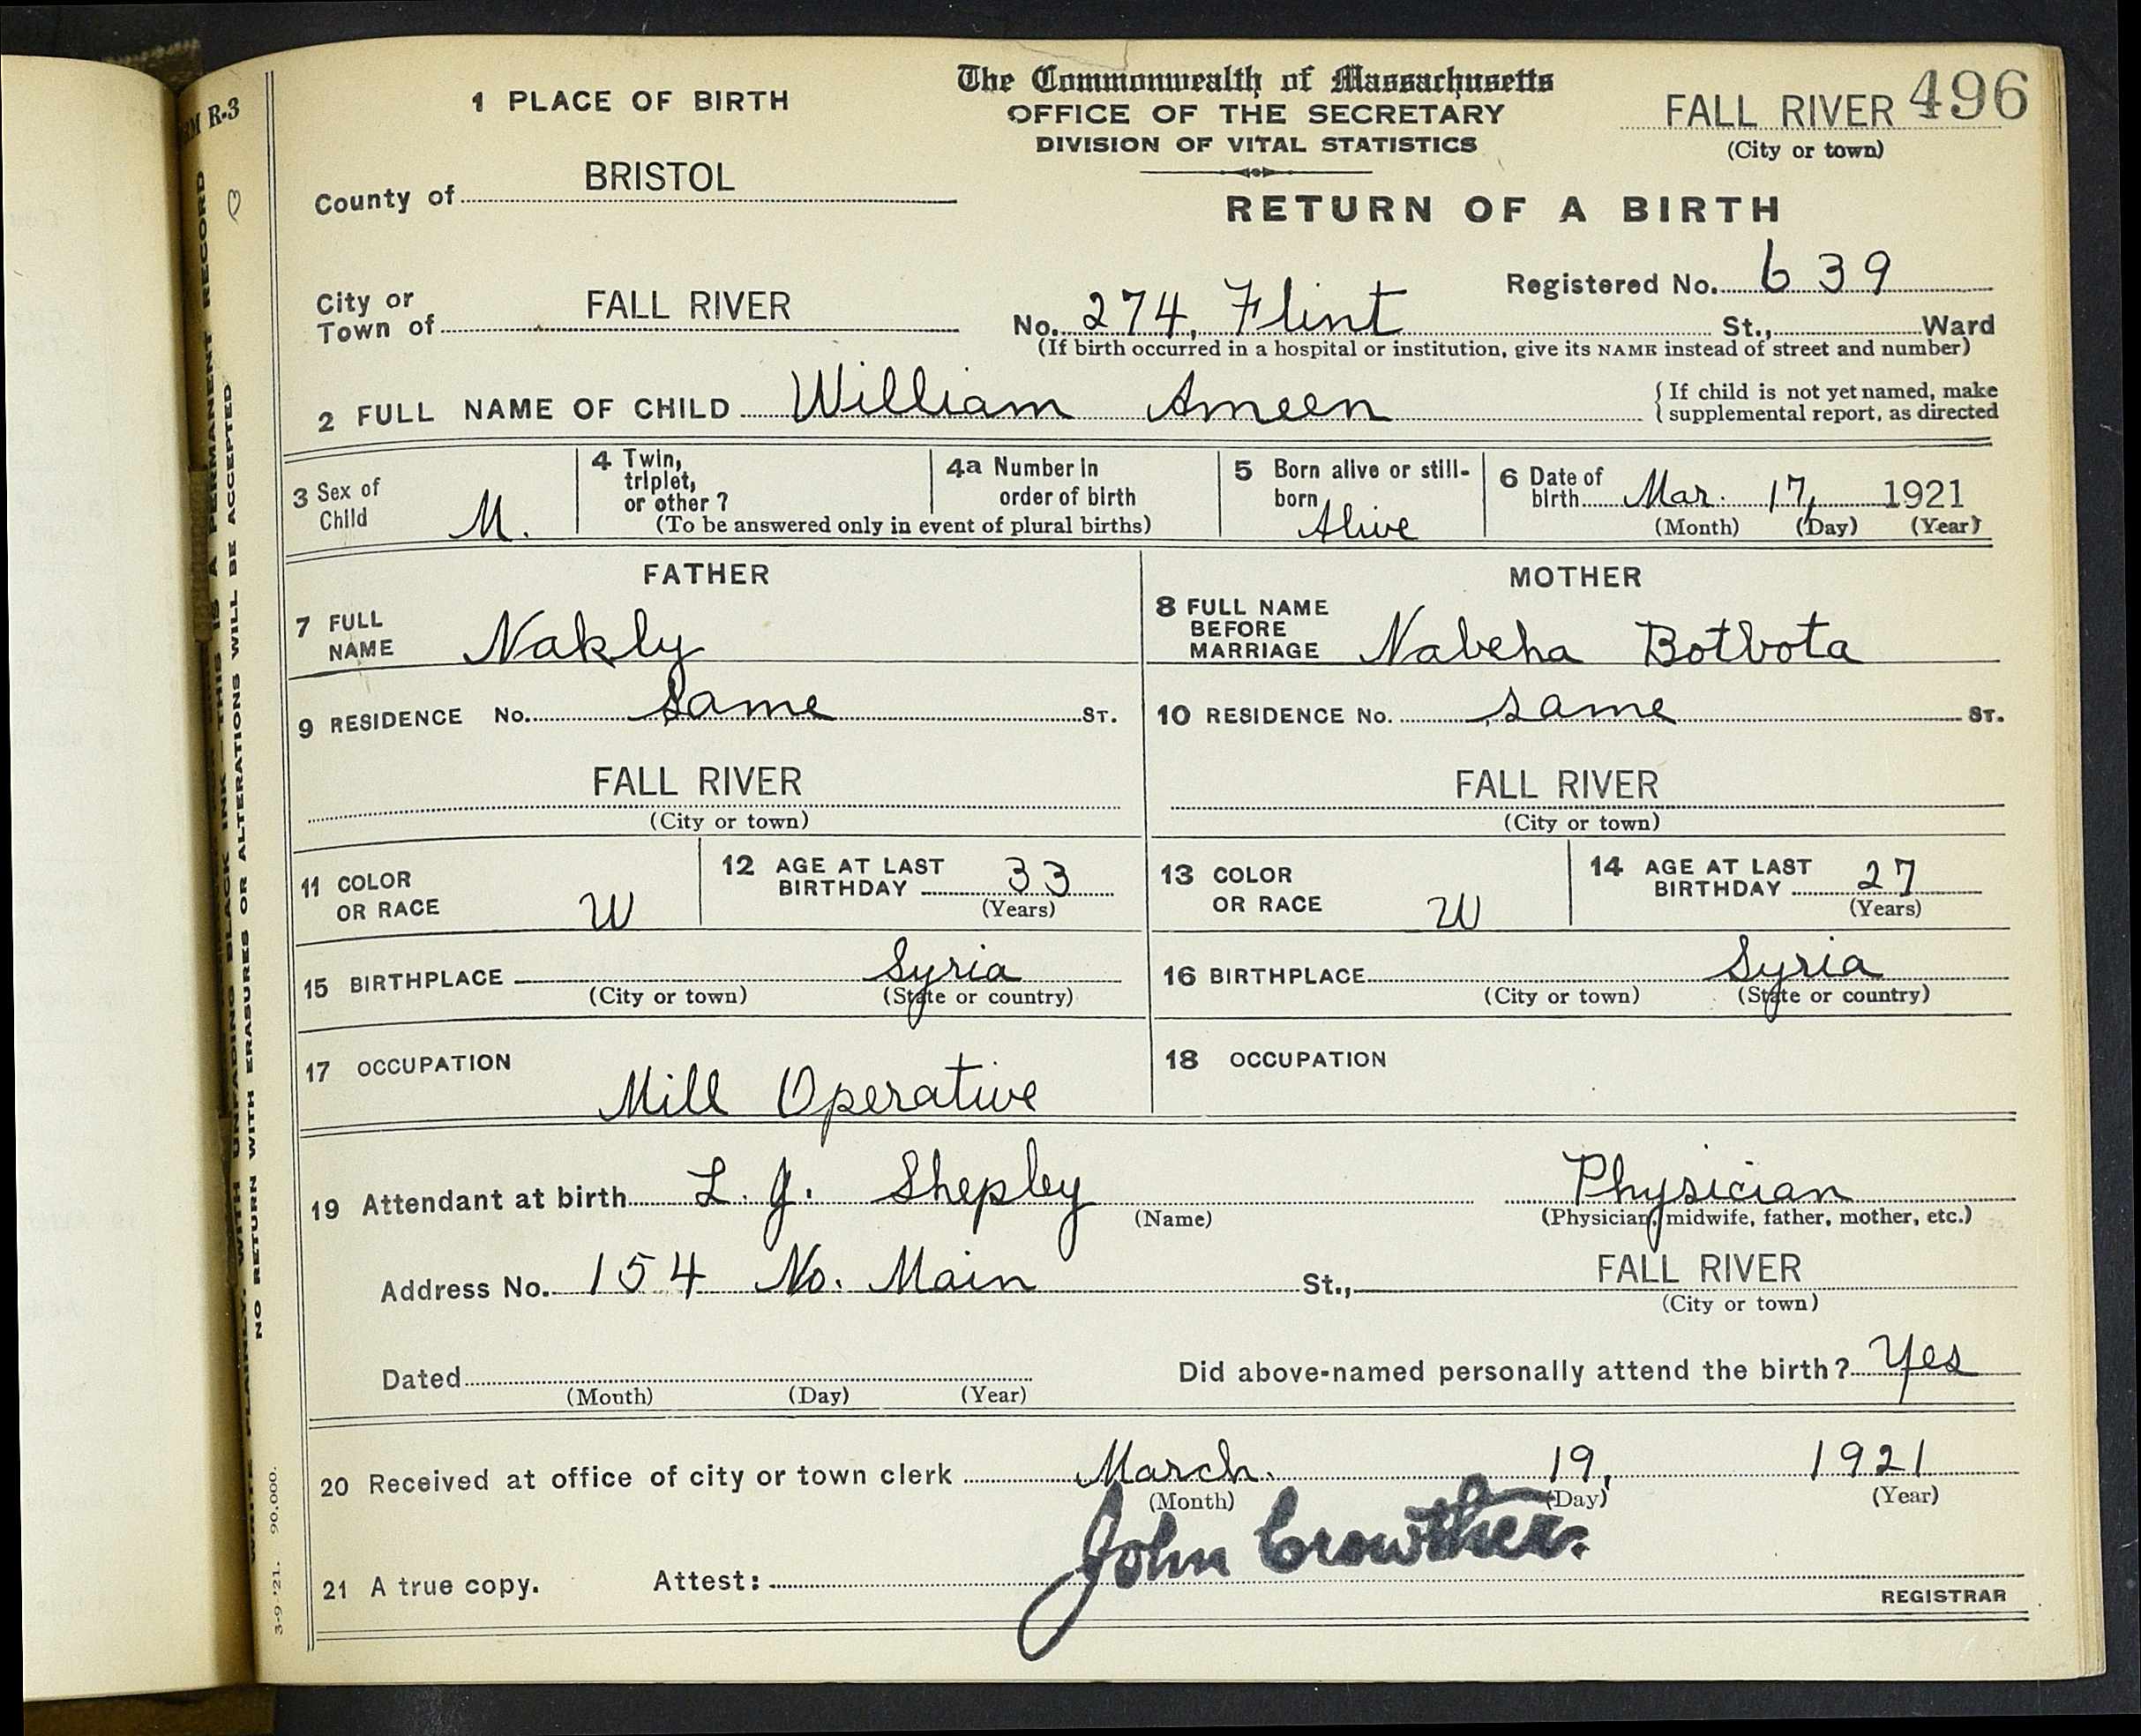 The Commonwealth of Massachusetts
OFFICE OF THE SECRETARY
DIVISION OF VITAL STATISTICS
FALL RIVER 496
(City or town)
R-3
1 PLACE OF BIRTH
County of BRISTOL
RETURN OF A BIRTH
Registered No. 639
City or
Town of FALL RIVER
No. 274, Flint St., Ward
(If birth occurred in a hospital or institution, give its NAME instead of street and number)
2 FULL NAME OF CHILD William Ameen
{ If child is not yet named, make
{ supplemental report, as directed
3 Sex of
Child M.
4 Twin,
triplet,
or other ?
4a Number in
order of birth
(To be answered only in event of plural births)
5 Born alive or still-
born Alive
6 Date of
birth Mar. 17, 1921
(Month) (Day) (Year)
FATHER
7 FULL
NAME Nakly
9 RESIDENCE No. Same ST.
FALL RIVER
(City or town)
11 COLOR
OR RACE W
12 AGE AT LAST
BIRTHDAY 33
(Years)
15 BIRTHPLACE Syria
(City or town) (State or country)
17 OCCUPATION
Mill Operative
MOTHER
8 FULL NAME
BEFORE
MARRIAGE Nabeha Botbota
10 RESIDENCE No. same ST.
FALL RIVER
(City or town)
13 COLOR
OR RACE W
14 AGE AT LAST
BIRTHDAY 27
(Years)
16 BIRTHPLACE Syria
(City or town) (State or country)
18 OCCUPATION
19 Attendant at birth L. J. Shepley Physician
(Name) (Physician, midwife, father, mother, etc.)
Address No. 154 No. Main St., FALL RIVER
(City or town)
Dated
(Month) (Day) (Year)
Did above-named personally attend the birth? Yes
20 Received at office of city or town clerk March. 19, 1921
(Month) (Day) (Year)
21 A true copy. Attest: John Crowther.
REGISTRAR
WRITE PLAINLY, WITH UNFADING BLACK INK—THIS IS A PERMANENT RECORD
NO RETURN WITH ERASURES OR ALTERATIONS WILL BE ACCEPTED
3-9-'21. 90,000.